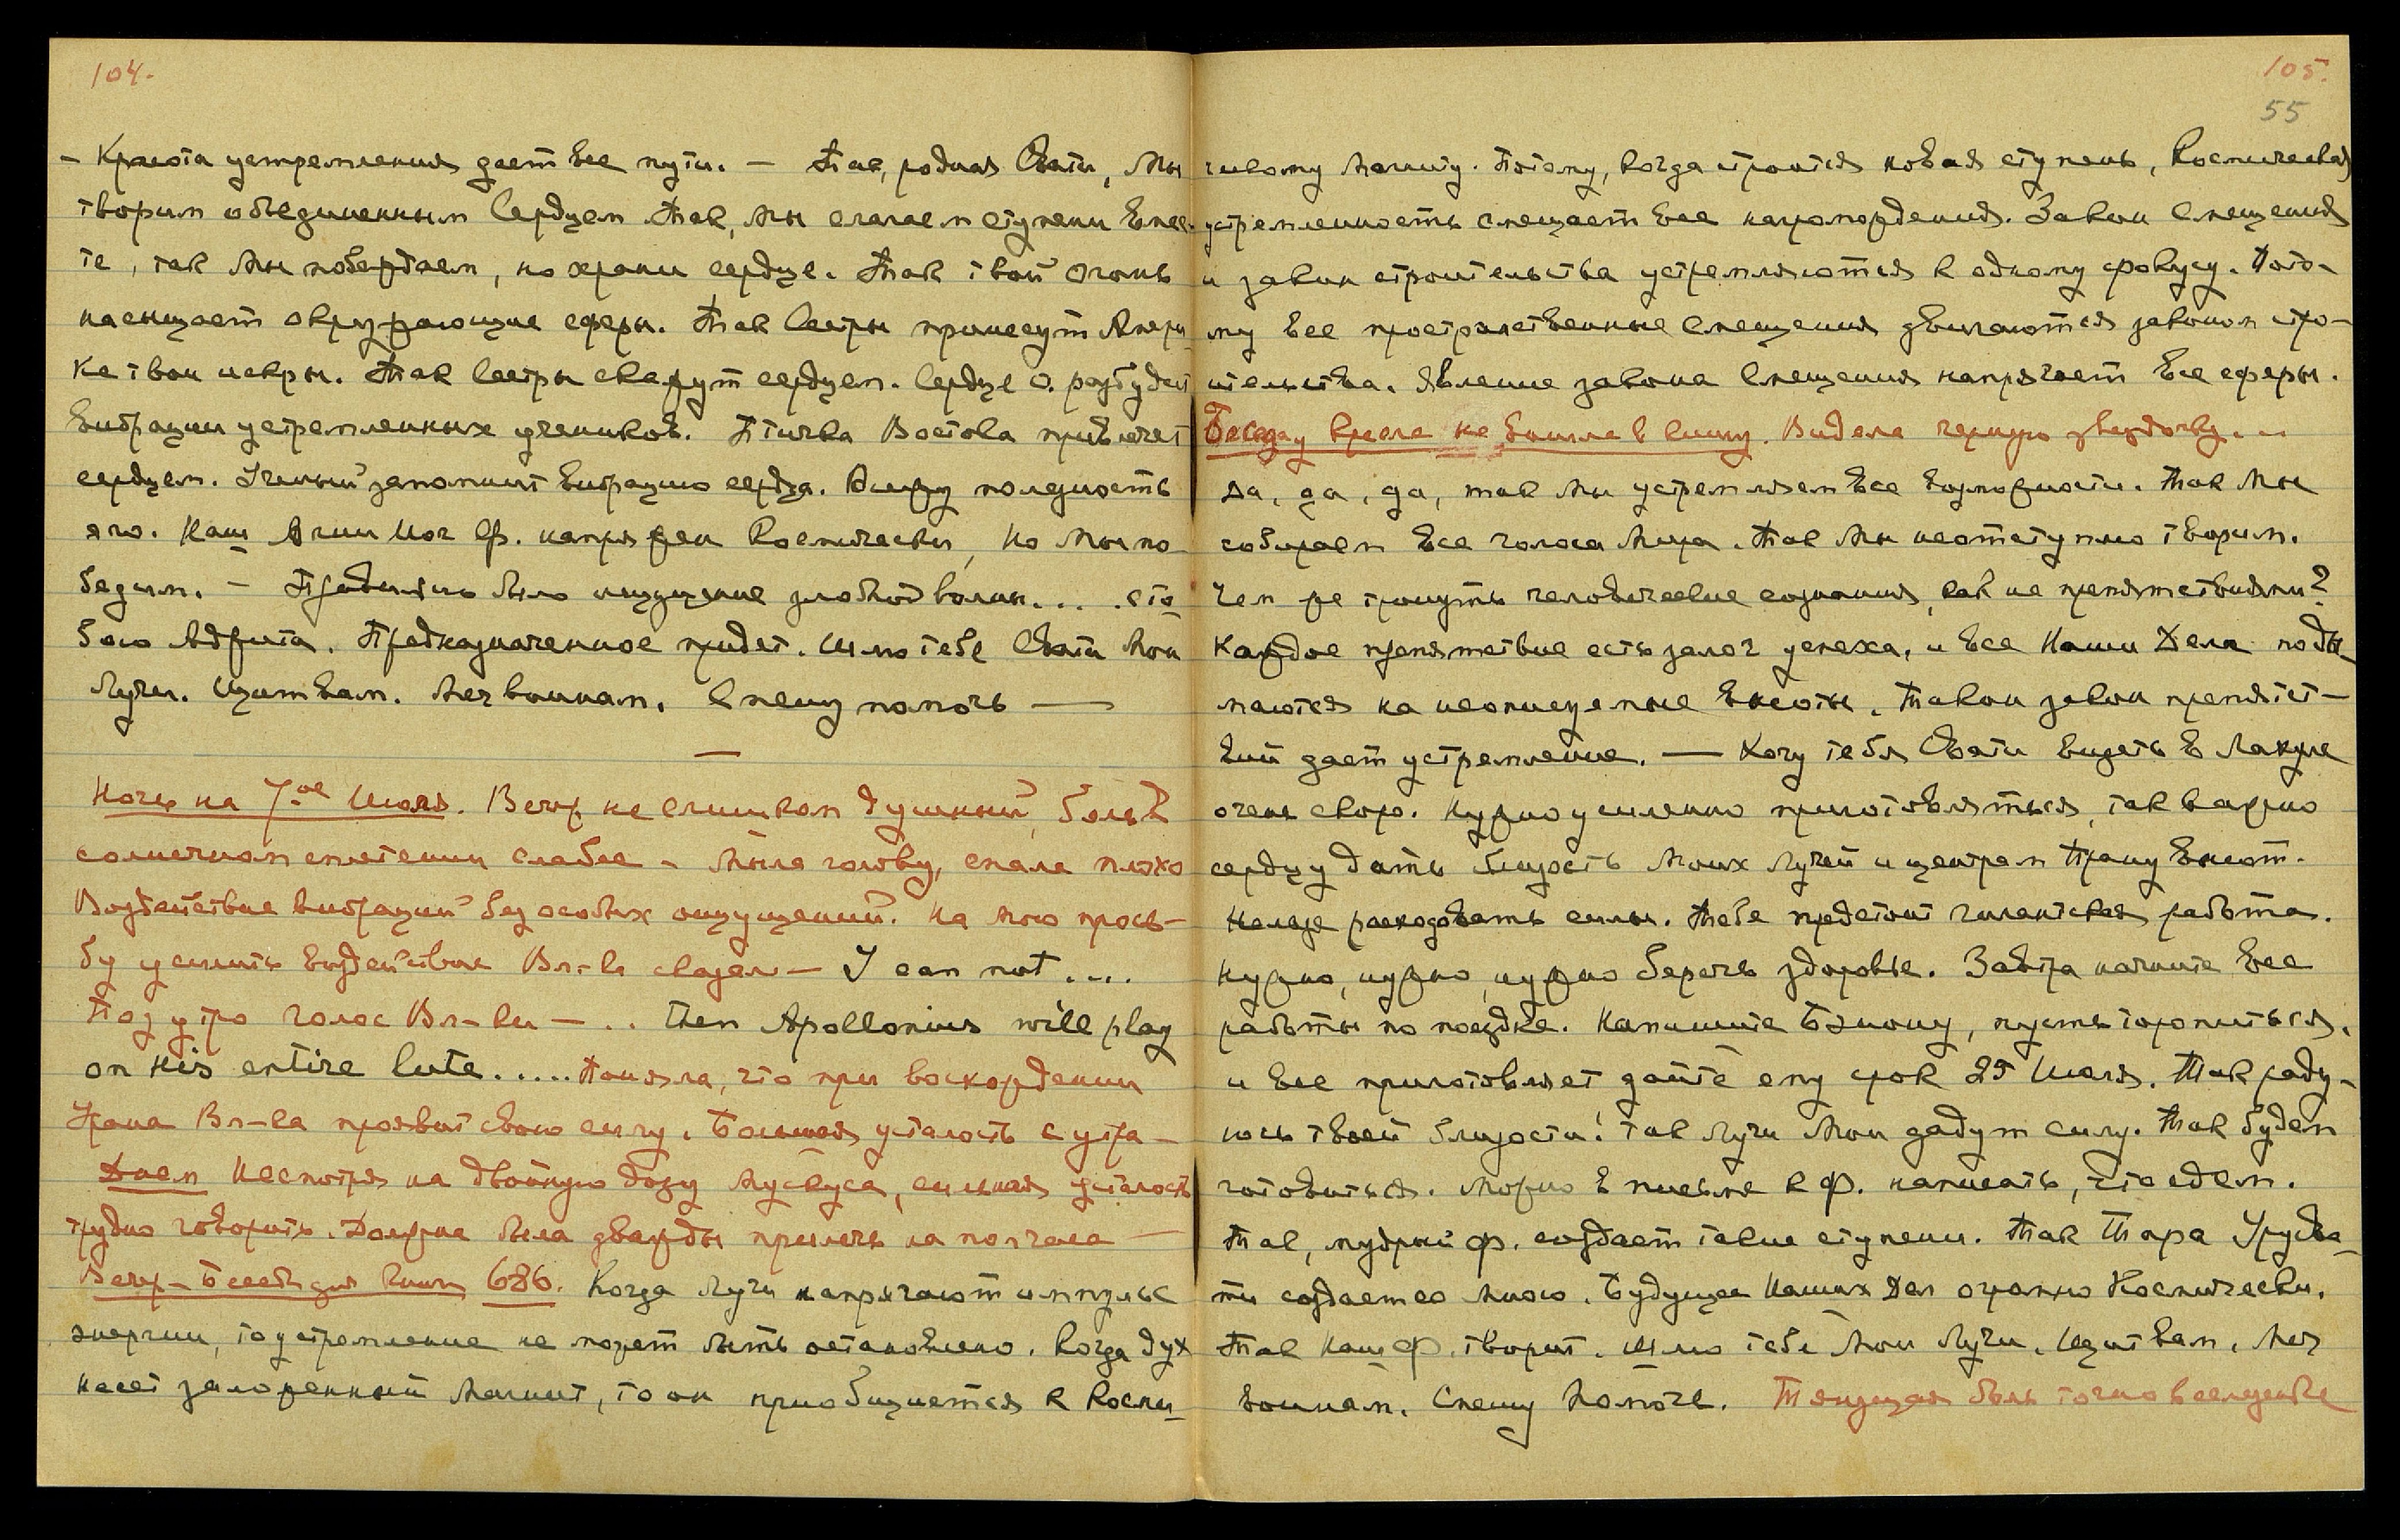 104.
- Красота устремления дает все пути. — Так, родная Свати, Мы
творим объединенным Сердцем. Так, мы слагаем ступени вмес-
те, так Мы побеждаем, но храни сердце. Так твой огонь
насыщает окружающие сферы. Так Сестры принесут Амери-
ке твои искры. Так Сестры скажут сердцем. Сердце О. разбудит
вибрации устремленных учеников. Птичка Востока привлечет
сердцем. Ученый запомнит вибрацию сердца. Вижу полезность
его. Наш Агни Йог Ф. напряжен Космически, но Мы по-
бедим. — было ощущение злобной волны....
Предназначенное придет. Шлю тебе Свати Мои
Лучи. Щит вам. Меч воинам. Спешу помочь —
Ночь на 7-ое Июля. Вечер не слишком душный, боль в
солнечном сплетении слабее - Мыла голову, спала плохо
Воздействие вибраций без особых ощущений. На мою прось-
бу усилить воздействие Вл-ка сказал — I can not....
Под утро голос Вл-ки — .. Then Apollonius will play
on His entire lute..... Поняла, что при восхождении
Урана Вл-ка проявит свою силу. Большая усталость с утра —
Днем Несмотря на двойную дозу мускуса, сильная усталость
трудно говорить. Должна была дважды прилечь на полчаса —
Вечер - Беседа для книги 686. Когда Лучи напрягают импульс
энергии, то устремление не может быть остановлено. Когда дух
несет заложенный Магнит, то он приобщается к Косми-
105.
55
ческому Магниту. Потому, когда строится новая ступень, Космическая
устремленность смещает все нагромождения. Закон смещения
и закон строительства устремляются к одному фокусу. Пото-
му все пространственные смещения двигаются законом стро-
ительства. Явление закона смещения напрягает все сферы.
Беседа у кресла не вошла в книгу. Видела черную звездочку...
Да, да, да, так Мы устремляем все возможности. Так Мы
собираем все голоса Мира. Так Мы неотступно творим.
Чем же тронуть человеческие сознания, как не препятствиями?
Каждое препятствие есть залог успеха, и все Наши Дела поды-
маются на неописуемые высоты. Таков закон препятст-
вий дает устремление. — Хочу тебя Свати видеть в Лахуле
очень скоро. Нужно усиленно приготовляться, так важно
сердцу дать близость Моих Лучей и центрам Прану высот.
Нельзя расходовать силы. Тебе предстоит гигантская работа.
Нужно, нужно, нужно беречь здоровье. Завтра начните все
работы по поездке. Напишите Бэнону, пусть торопиться,
и все приготовляет дайте ему срок 25 Июля. Так раду-
юсь твоей близости! Так Лучи Мои дадут силу. Так будем
готовиться. Можно в письме к Ф. написать, что едем.
Так, мудрый Ф. создает такие ступени. Так Тара Урусва-
ти создает со Мною. Будущее Наших Дел огромно Космически.
Так Наш Ф. творит. Шлю тебе Мои Лучи. Щит вам. Меч
воинам. Спешу помочь. Тянущая боль точно вследствие